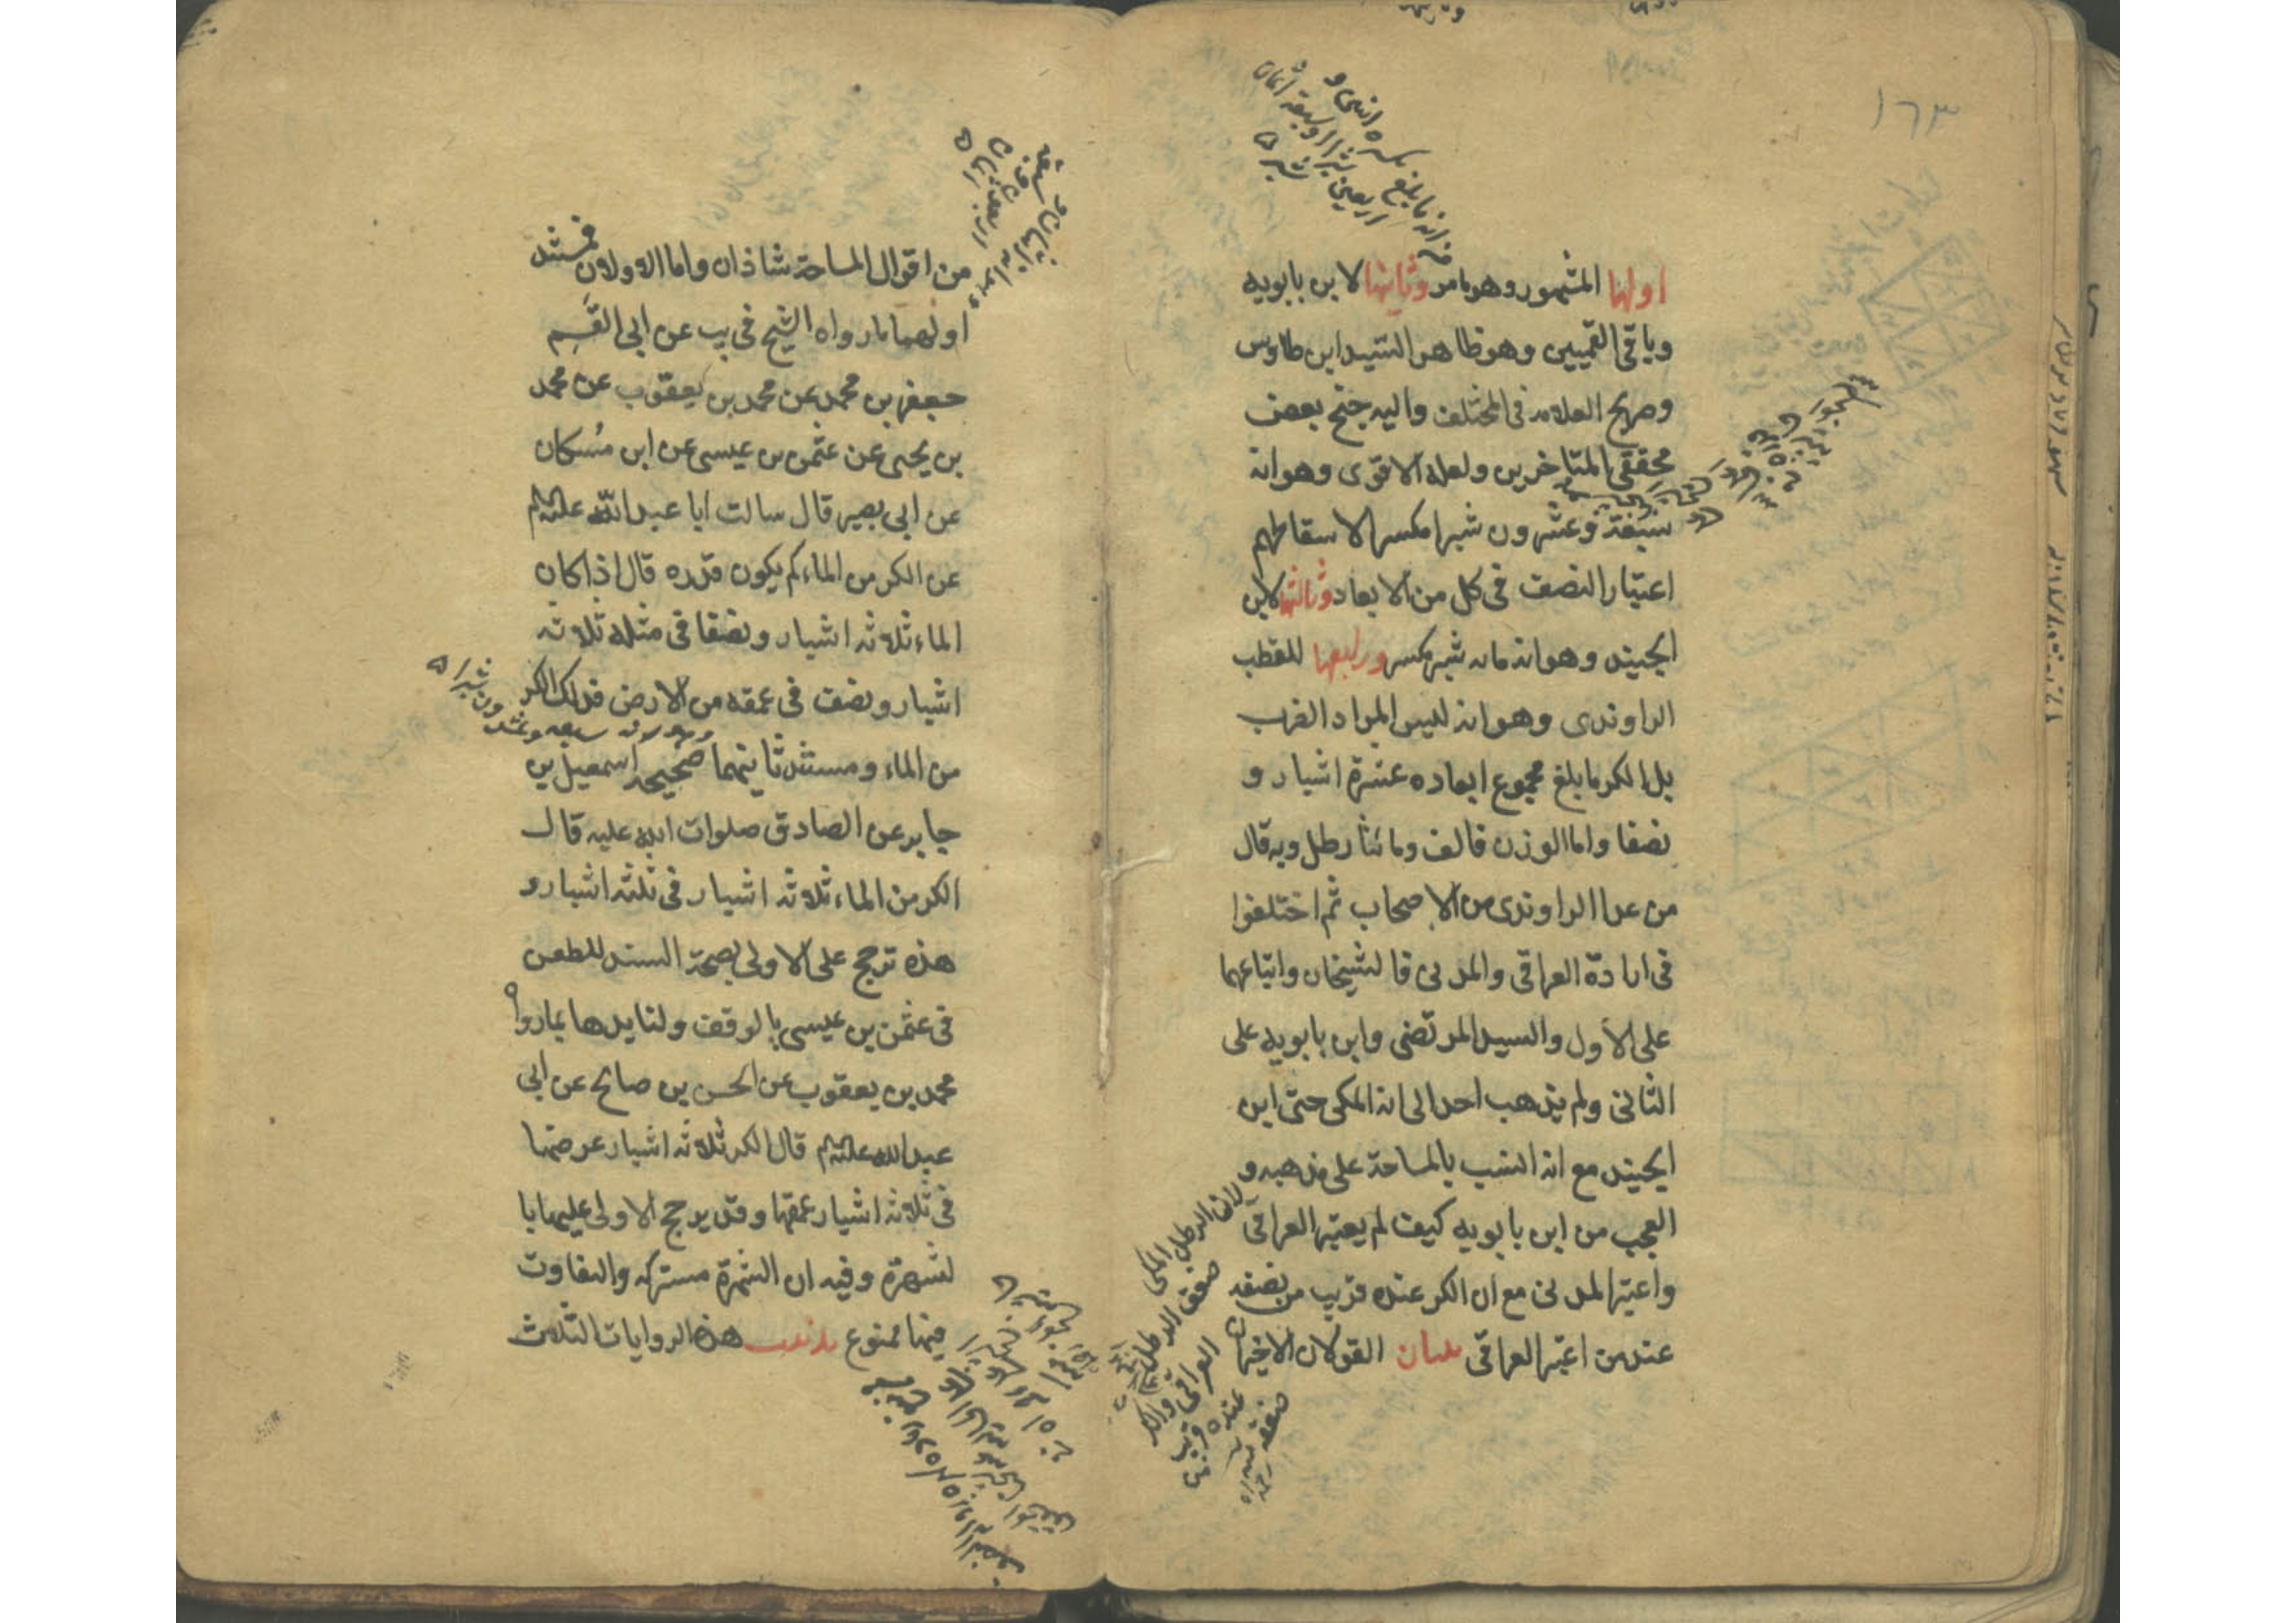 ١٦٣
من انه ما بلغ تكسيره اثنين و
اربعين شبرا وسبعة اثمان
شبر
اولها المشهور وهو ما مر وثانيها لابن بابويه
وباقي القميين وهو ظاهر السيد ابن طاوس
وصريح العلامه في المختلف واليه جنح بعض
محققي المتاخرين ولعله الاقوى وهو انه
سبعة وعشرون شبرا مكسرا لاسقاطهم
اعتبار النصف في كل من الابعاد وثالثها لابن
الجنيد وهو انه مائه شبر مكسر ورابعها للقطب
الراوندى وهو انه ليس المراد الضرب
بل الكر ما بلغ مجموع ابعاده عشرة اشبار و
نصفا واما الوزن فالف ومائتا رطل وبه قال
من عدا الراوندى من الاصحاب ثم اختلفوا
في ارادة العراقي والمدني فالشيخان واتباعهما
على الأول والسيد المرتضى وابن بابويه على
الثاني ولم يذهب احد الى انه المكي حتى ابن
الجنيد مع انه انسب بالمساحة على مذهبه و
العجب من ابن بابويه كيف لم يعتبر العراقي
واعتبر المدني مع ان الكر عنده قريب من نصفه
عند من اعتبر العراقي بيان القولان الاخيران
لان الرطل المكي
ضعف الرطل
العراقي والكر
عنده قريب من
ضعفه
من اقوال المساحة شاذان واما الاولان فمستند
اولهما ما رواه الشيخ في يب عن ابي القسم
جعفر بن محمد عن محمد بن يعقوب عن محمد
بن يحيى عن عثمن بن عيسى عن ابن مسكان
عن ابي بصير قال سالت ابا عبد الله عليه السلم
عن الكر من الماء كم يكون قدره قال اذا كان
الماء ثلاثه اشبار ونصفا في مثله ثلاثه
اشبار ونصف في عمقه من الارض فذلك الكر
من الماء ومستند ثانيهما صحيحه اسمعيل بن
وهو كونه سبعه وعشرون شبرا
جابر عن الصادق صلوات الله عليه قال
الكر من الماء ثلاثه اشبار في ثلثه اشبار و
هذه ترجح على الاولى بصحة السند للطعن
في عثمن بن عيسى بالوقف ولتايدها بما رواه
محمد بن يعقوب عن الحسن بن صالح عن ابي
عبد الله عليه السلم قال الكر ثلاثه اشبار عرضها
في ثلاثه اشبار عمقها وقد يرجح الاولى عليها با
لشهرة وفيه ان الشهرة مشتركه والتفاوت
فيها ممنوع تذنيب هذه الروايات الثلاث